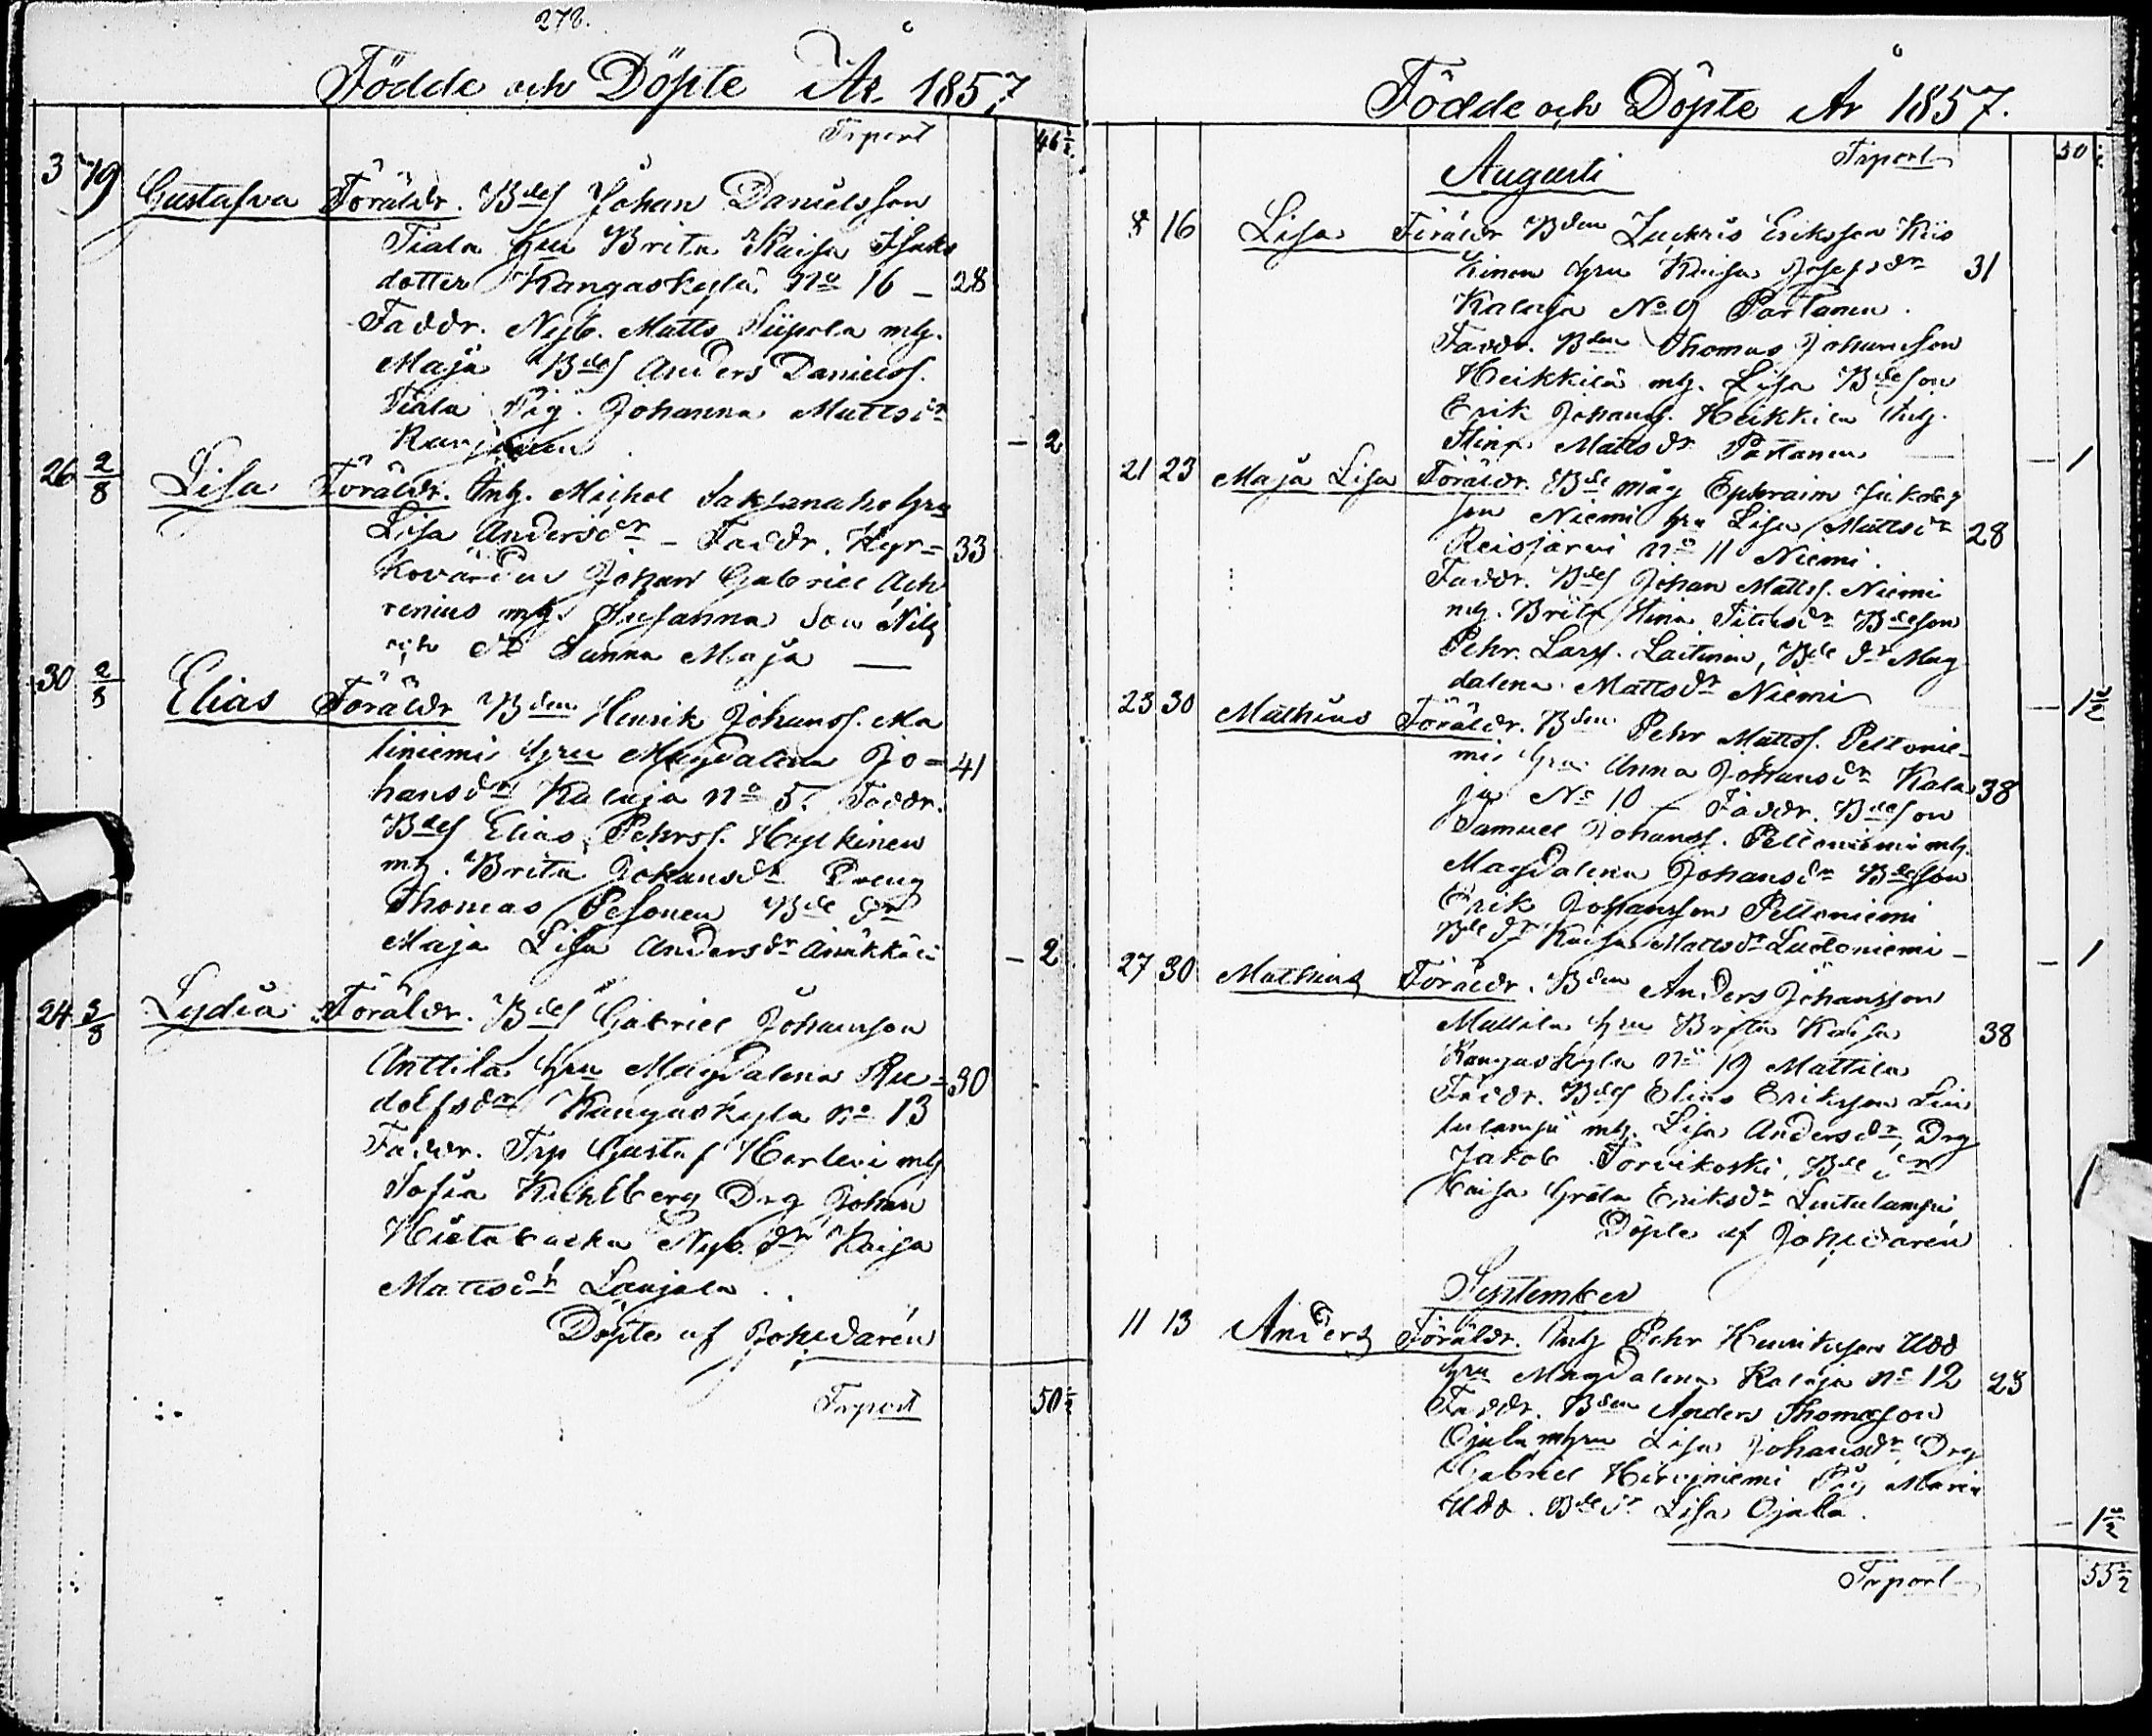 272.
Födde och Döpte År 1857
Trport 46 1/2
3 19 Gustafva Föräldr. Bdes Johan Danielsson
Tiala hru Brita Kaisa Isaks
dotter Kangaskylä No 16 – 28
Faddr. Nyb. Matts Siipola mh.
Maja Bdes Anders Daniels.
Tiala Pig. Johanna Mattsdr
– 2
26 2/8 Lisa Föräldr. Inh. Michel Saklanaho hru
Lisa Andersdr – Faddr. Kyr= 33
kovärden Johan Gabriel Ach
renius mh. Susanna Son Nils
och Dr Sanna Maja —
30 2/8 Elias Föräldr Bden Henrik Johanss. Ma
liniemi hru Magdalena Jo= 41
hansdr Kalaja No 5. Faddr.
Bdes Elias Pehrss. Hylkinen
mh. Brita Johansdr Dreng
Thomas Pesonen Bde dr
Maja Lisa Andersdr – 2
24 3/8 Lydia Föräldr. Bdes Gabriel Johansson
Anttila hru Magdalena Ru= 30
dolfsdr Kangaskyla No 13
Faddr. Trp Gustaf Herlevi mh
Sofia Kihlberg Drg Johan
Hietabacka Nyb. dr Kaisa
Mattsdr Laujala .
Döpte af Johidarén
Trport 50 1/2
Födde och Döpte År 1857.
Trport 50 1/2
Augusti
8 16 Lisa Föräldr Bden Zachris Eriksson Kiis
kinen hru Kaisa Josefsdr 31
Kalaja No 9 Partanen.
Faddr. Bden Thomas Johansson
Heikkilä mh. Lisa Bdeson
Erik Johanss. Heikkila Inh.
Stina Mattsdr Partanen — 1
21 23 Maja Lisa Föräldr. Bde måg Ephraim Jakobs
son Niemi hru Lisa Mattsdr 28
Reisjärvi No 11 Niemi.
Faddr. Bdes Johan Mattss. Niemi
mh. Brita Stina Titusdr Bdeson
Pehr Larss. Laitinen, Bde dr Mag
dalena Mattsdr Niemi — 1 1/2
23 30 Mathias Föräldr. Bden Pehr Mattss. Peltonie-
mi hru Anna Johansdr Kala 38
ja No 10 – Faddr. Bdeson
Samuel Johanss. Peltoniemi mh.
Magdalena Johansdr Bdeson
Erik Johansson Peltoniemi
Bde dr Kaisa Mattsdr Luotoniemi – 1
27 30 Mathias Föräldr. Bden Anders Johansson
Mattila hru Brita Kaisa 38
Kangaskyla No 19 Mattila
Faddr. Bdes Elias Eriksson Lin
tulampi mh. Lisa Andersdr, Drg
Jakob Torvikoski, Bde dr 1
Kaisa Greta Eriksdr Lintulampi
Döpte af Johidarén
September
11 13 Anders Föräldr. Inh Pehr Henriksson Udd
hru Magdalena Kalaja No 12 23
Faddr. Bden Anders Thomasson
Ojala mhru Lisa Johansdr Drg
Gabriel Hirviniemi Pig Maria
Udd. Bde dr Lisa Ojala. – 1 1/2
Trport 55 1/2